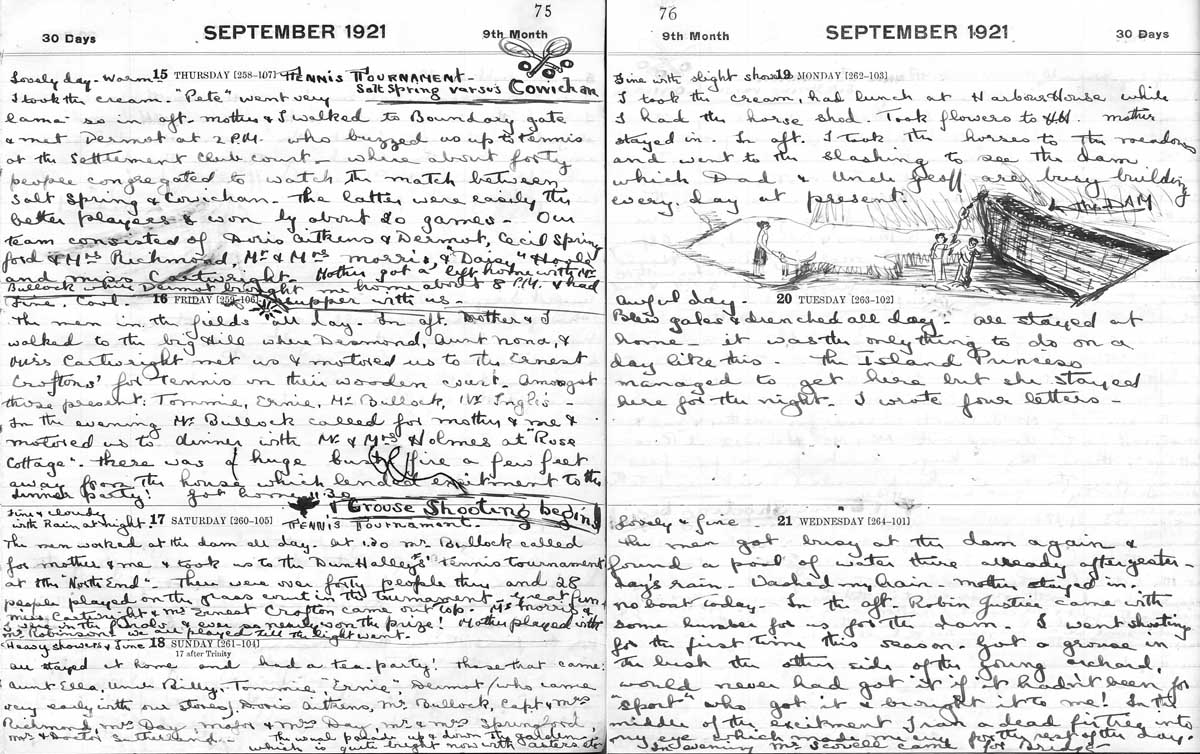 75
30 Days SEPTEMBER 1921 9th Month
Lovely day - Warm 15 THURSDAY [258-107] TENNIS TOURNAMENT -
Salt Spring versus Cowichan
I took the cream. "Pete" went very
lame so in aft. mother & I walked to Boundary gate
& met Dermot at 2 P.M. who buzzed us up to tennis
at the Settlement Club court - where about forty
people congregated to watch the match between
Salt Spring & Cowichan. The latter were easily the
better players & won by about 20 games. Our
team consisted of Doris Aitkens & Dermot, Cecil Spring
ford & Mrs Richmond, Mr & Mrs Morris, & "Daisy"
and Miss Cartwright. Mother got a left home with Mr
Bullock while Dermot brought me home about 8 P.M. & had
supper with us -
Fine. Cool. 16 FRIDAY [259-106]
The men in the fields all day. In aft. Mother & I
walked to the big Hill where Desmond, Aunt Nona, &
Miss Cartwright met us & motored us to the Ernest
Croftons' for tennis on their wooden court. Amongst
those present: Tommie, Ernie, Mr Bullock, Mr Inglis
In the evening Mr Bullock called for mother & me &
motored us to dinner with Mr & Mrs Holmes at "Rose
Cottage". There was a huge bush fire a few feet
away from the house which lended excitment to the
dinner party! Got home 11.30
Grouse Shooting begins
Fine & cloudy
with Rain at night 17 SATURDAY [260-105] TENNIS TOURNAMENT.
The men worked at the dam all day. At 1.30 Mr Bullock called
for mother & me & took us to the Dun Halleys' Tennis tournament
at the "North End". There were over forty people there and 28
people played on the grass court in the tournament. Great fun,
Miss Cartwright & Mr Ernest Crofton came out top. Mr Morris &
I were in the finals & ever so nearly won the prize! Mother played with
Mr Robinson. We all played till the light went.
Heavy showers & fine 18 SUNDAY [261-104]
17 after Trinity
All stayed at home and had a tea-party! Those that came:
Aunt Ella, Uncle Billy, Tommie "Ernie", Dermot (who came
very early with our stores), Doris Aitkens, Mr Bullock, Capt & Mrs
Richmond, Mrs Day, Major & Mrs Day, Mr & Mrs Springford,
Mr & Doctor Sutherland. The usual parade up & down the garden,
which is quite bright now with asters etc
76
9th Month SEPTEMBER 1921 30 Days
Fine with slight showers 19 MONDAY [262-103]
I took the cream, had lunch at Harbour House while
I had the horse shod. Took flowers to HH. Mother
stayed in. In aft. I took the horses to the meadows
and went to the slashing to see the dam
which Dad & Uncle Geoff are busy building
every day at present.
The DAM
Awful day. 20 TUESDAY [263-102]
Blew gales & drenched all day. All stayed at
home - it was the only thing to do on a
day like this. The Island Princess
managed to get here but she stayed
here for the night. I wrote four letters -
Lovely & fine 21 WEDNESDAY [264-101]
The men got busy at the dam again &
found a pool of water there already after yester-
day's rain. Washed my hair. Mother stayed in.
no boat today. In the aft Robin Justice came with
some lumber for us for the dam. I went shooting
for the first time this season. Got a grouse in
the bush the other side of the young orchard,
would never had got it if it hadn't been for
"Sport" who got it & brought it to me! In the
middle of the excitment I ran a dead fir twig into
my eye which made me cry for the rest of the day.
In evening Mr Scovell came for Bridge